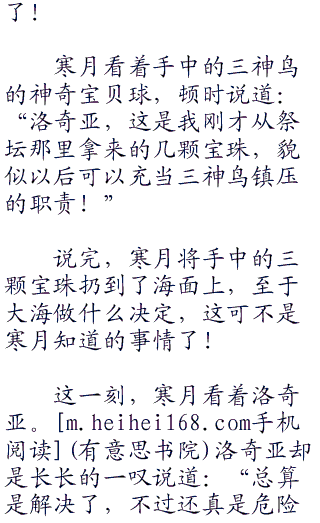 了！
寒月看着手中的三神鸟
的神奇宝贝球，顿时说道：
“洛奇亚，这是我刚才从祭
坛那里拿来的几颗宝珠，貌
似以后可以充当三神鸟镇压
的职责！”
说完，寒月将手中的三
颗宝珠扔到了海面上，至于
大海做什么决定，这可不是
寒月知道的事情了！
这一刻，寒月看着洛奇
亚。[m.heihei168.com手机
阅读](有意思书院)洛奇亚却
是长长的一叹说道：“总算
是解决了，不过还真是危险